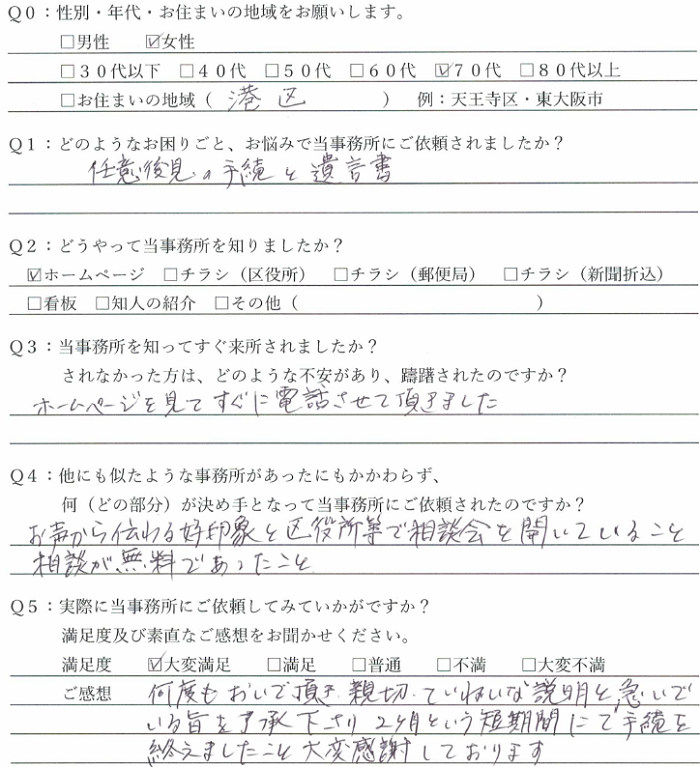 Q0：性別・年代・お住まいの地域をお願いします。
□男性　☑女性
□30代以下　□40代　□50代　□60代　☑70代　□80代以上
□お住まいの地域（ 港区 ）　例：天王寺区・東大阪市
Q1：どのようなお困りごと、お悩みで当事務所にご依頼されましたか？
任意後見の手続と遺言書
Q2：どうやって当事務所を知りましたか？
☑ホームページ　□チラシ（区役所）　□チラシ（郵便局）　□チラシ（新聞折込）
□看板　□知人の紹介　□その他（　　　）
Q3：当事務所を知ってすぐ来所されましたか？
されなかった方は、どのような不安があり、躊躇されたのですか？
ホームページを見てすぐに電話させて頂きました
Q4：他にも似たような事務所があったにもかかわらず、
何（どの部分）が決め手となって当事務所にご依頼されたのですか？
お声から伝わる好印象と区役所等で相談会を開いていること
相談が無料であったこと
Q5：実際に当事務所にご依頼してみていかがですか？
満足度及び素直なご感想をお聞かせください。
満足度　☑大変満足　□満足　□普通　□不満　□大変不満
ご感想　何度もおいで頂き 親切、ていねいな説明と急いで
いる旨を了承下さり 2ヶ月という短期間にて手続を
終えましたこと大変感謝しております